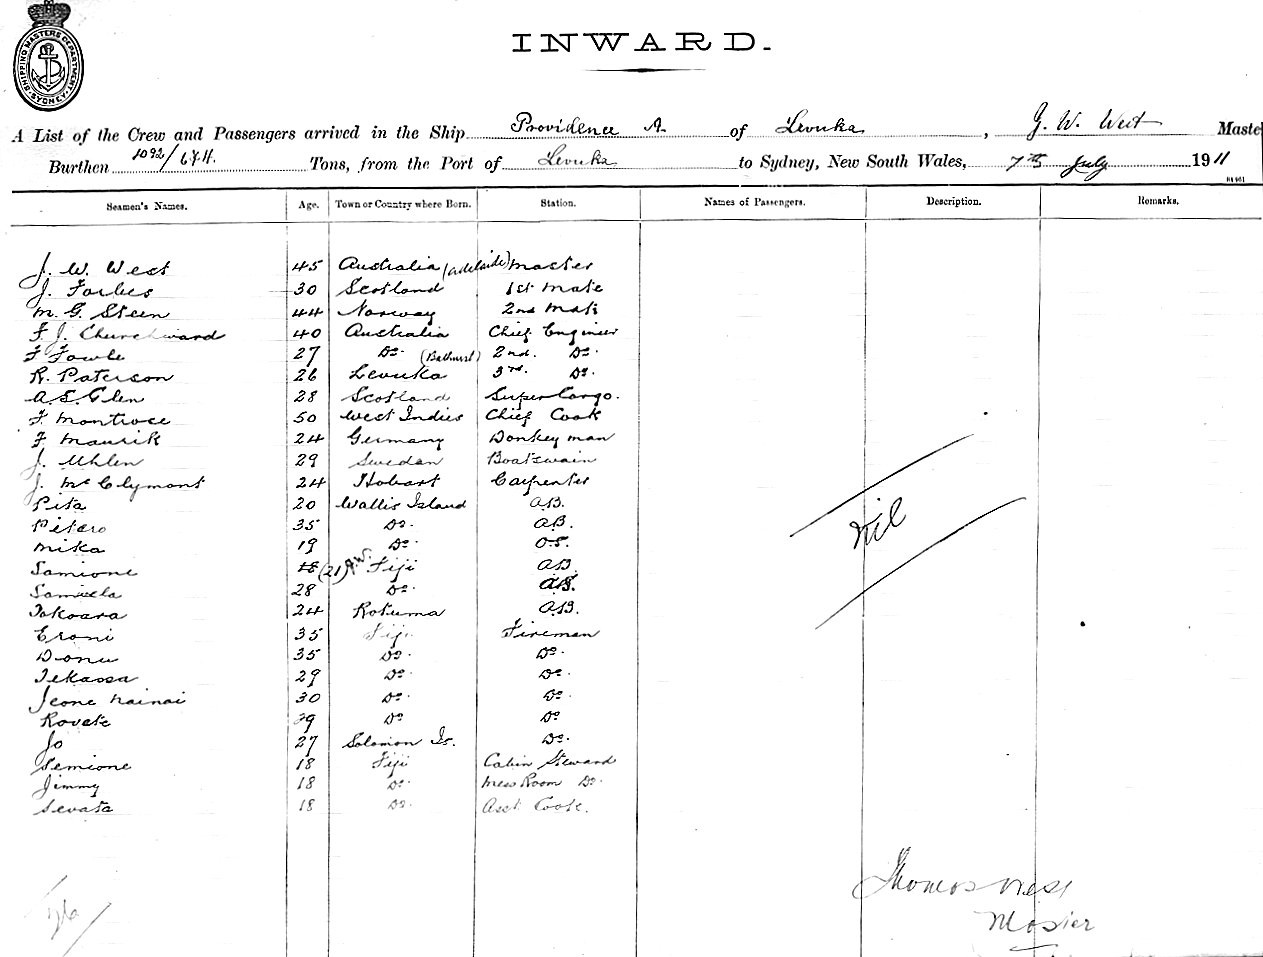 SHIPPING MASTERS DEPARTMENT SYDNEY
INWARD.
A List of the Crew and Passengers arrived in the Ship Providence A of Levuka, J. W. West Maste
Burthen 1092/674. Tons, from the Port of Levuka to Sydney, New South Wales, 7th July 1911
Seamen's Names. Age. Town or Country where Born. Station. Names of Passengers. Description. Remarks.
J. W. West 45 Australia (Adelaide) Master
J. Forbes 30 Scotland 1st Mate
M. G. Steen 44 Norway 2nd Mate
F J. Churchward 40 Australia Chief Engineer
F Fowle 27 Do. (Bathurst) 2nd. Do.
R. Paterson 26 Levuka 3rd. Do.
A. S. Glen 28 Scotland Super Cargo.
F. Montrose 50 West Indies Chief Cook
F. Maurik 24 Germany Donkey man
J. Uhlen 29 Sweden Boatswain
J. McClymont 24 Hobart Carpenter
Pita 20 Wallis Island A.B.
Petero 35 Do. A.B.
Mika 19 Do. O.S.
Samione 18 (21) Fiji A.B.
Samuela 28 Do. A.B.
Takoara 24 Rotuma A.B.
Eroni 35 Fiji Fireman
Donu 35 Do. Do.
Tekassa 29 Do. Do.
Jeone Nainai 30 Do. Do.
Rovete 29 Do Do
Jo 27 Solomon Is. Do.
Semione 18 Fiji Cabin Steward
Jimmy 18 Do. Mess Room Do.
Sevata 18 Do. Asst. Cook.
Nil
Thomas West
Master
26/